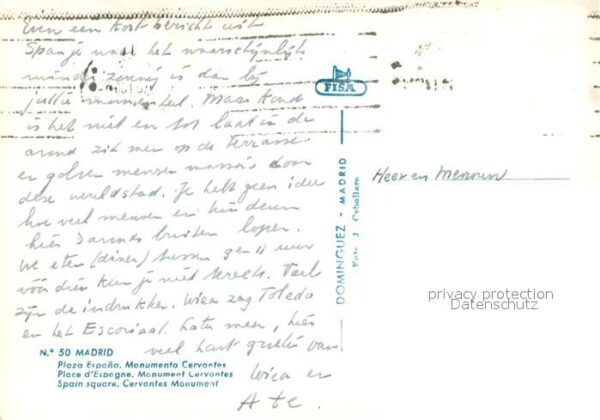 Even een kort bericht uit
Spanje waar het waarschijnlijk
minder zonnig is dan bij
jullie momenteel. Maar koud
is het niet en tot laat in de
avond zit men op de terrassen
en golven mensen massa's door
deze wereldstad. Je hebt geen idee
hoe veel mensen en kinderen
hier 's avonds buiten lopen.
We eten (diner) tussen 9 en 11 uur
vóór dien kan je niet terecht. Veel
zijn de indrukken. Wiea zag Toledo
en het Escoriaal. Later meer, hier
veel hart. groeten van
Wiea en
Ate.
N.º 50 MADRID
Plaza España. Monumento Cervantes
Place d'Espagne. Monument Cervantes
Spain square. Cervantes Monument
FISA
DOMINGUEZ - MADRID
Foto J. Cebollero
Heer en Mevrouw
privacy protection
Datenschutz